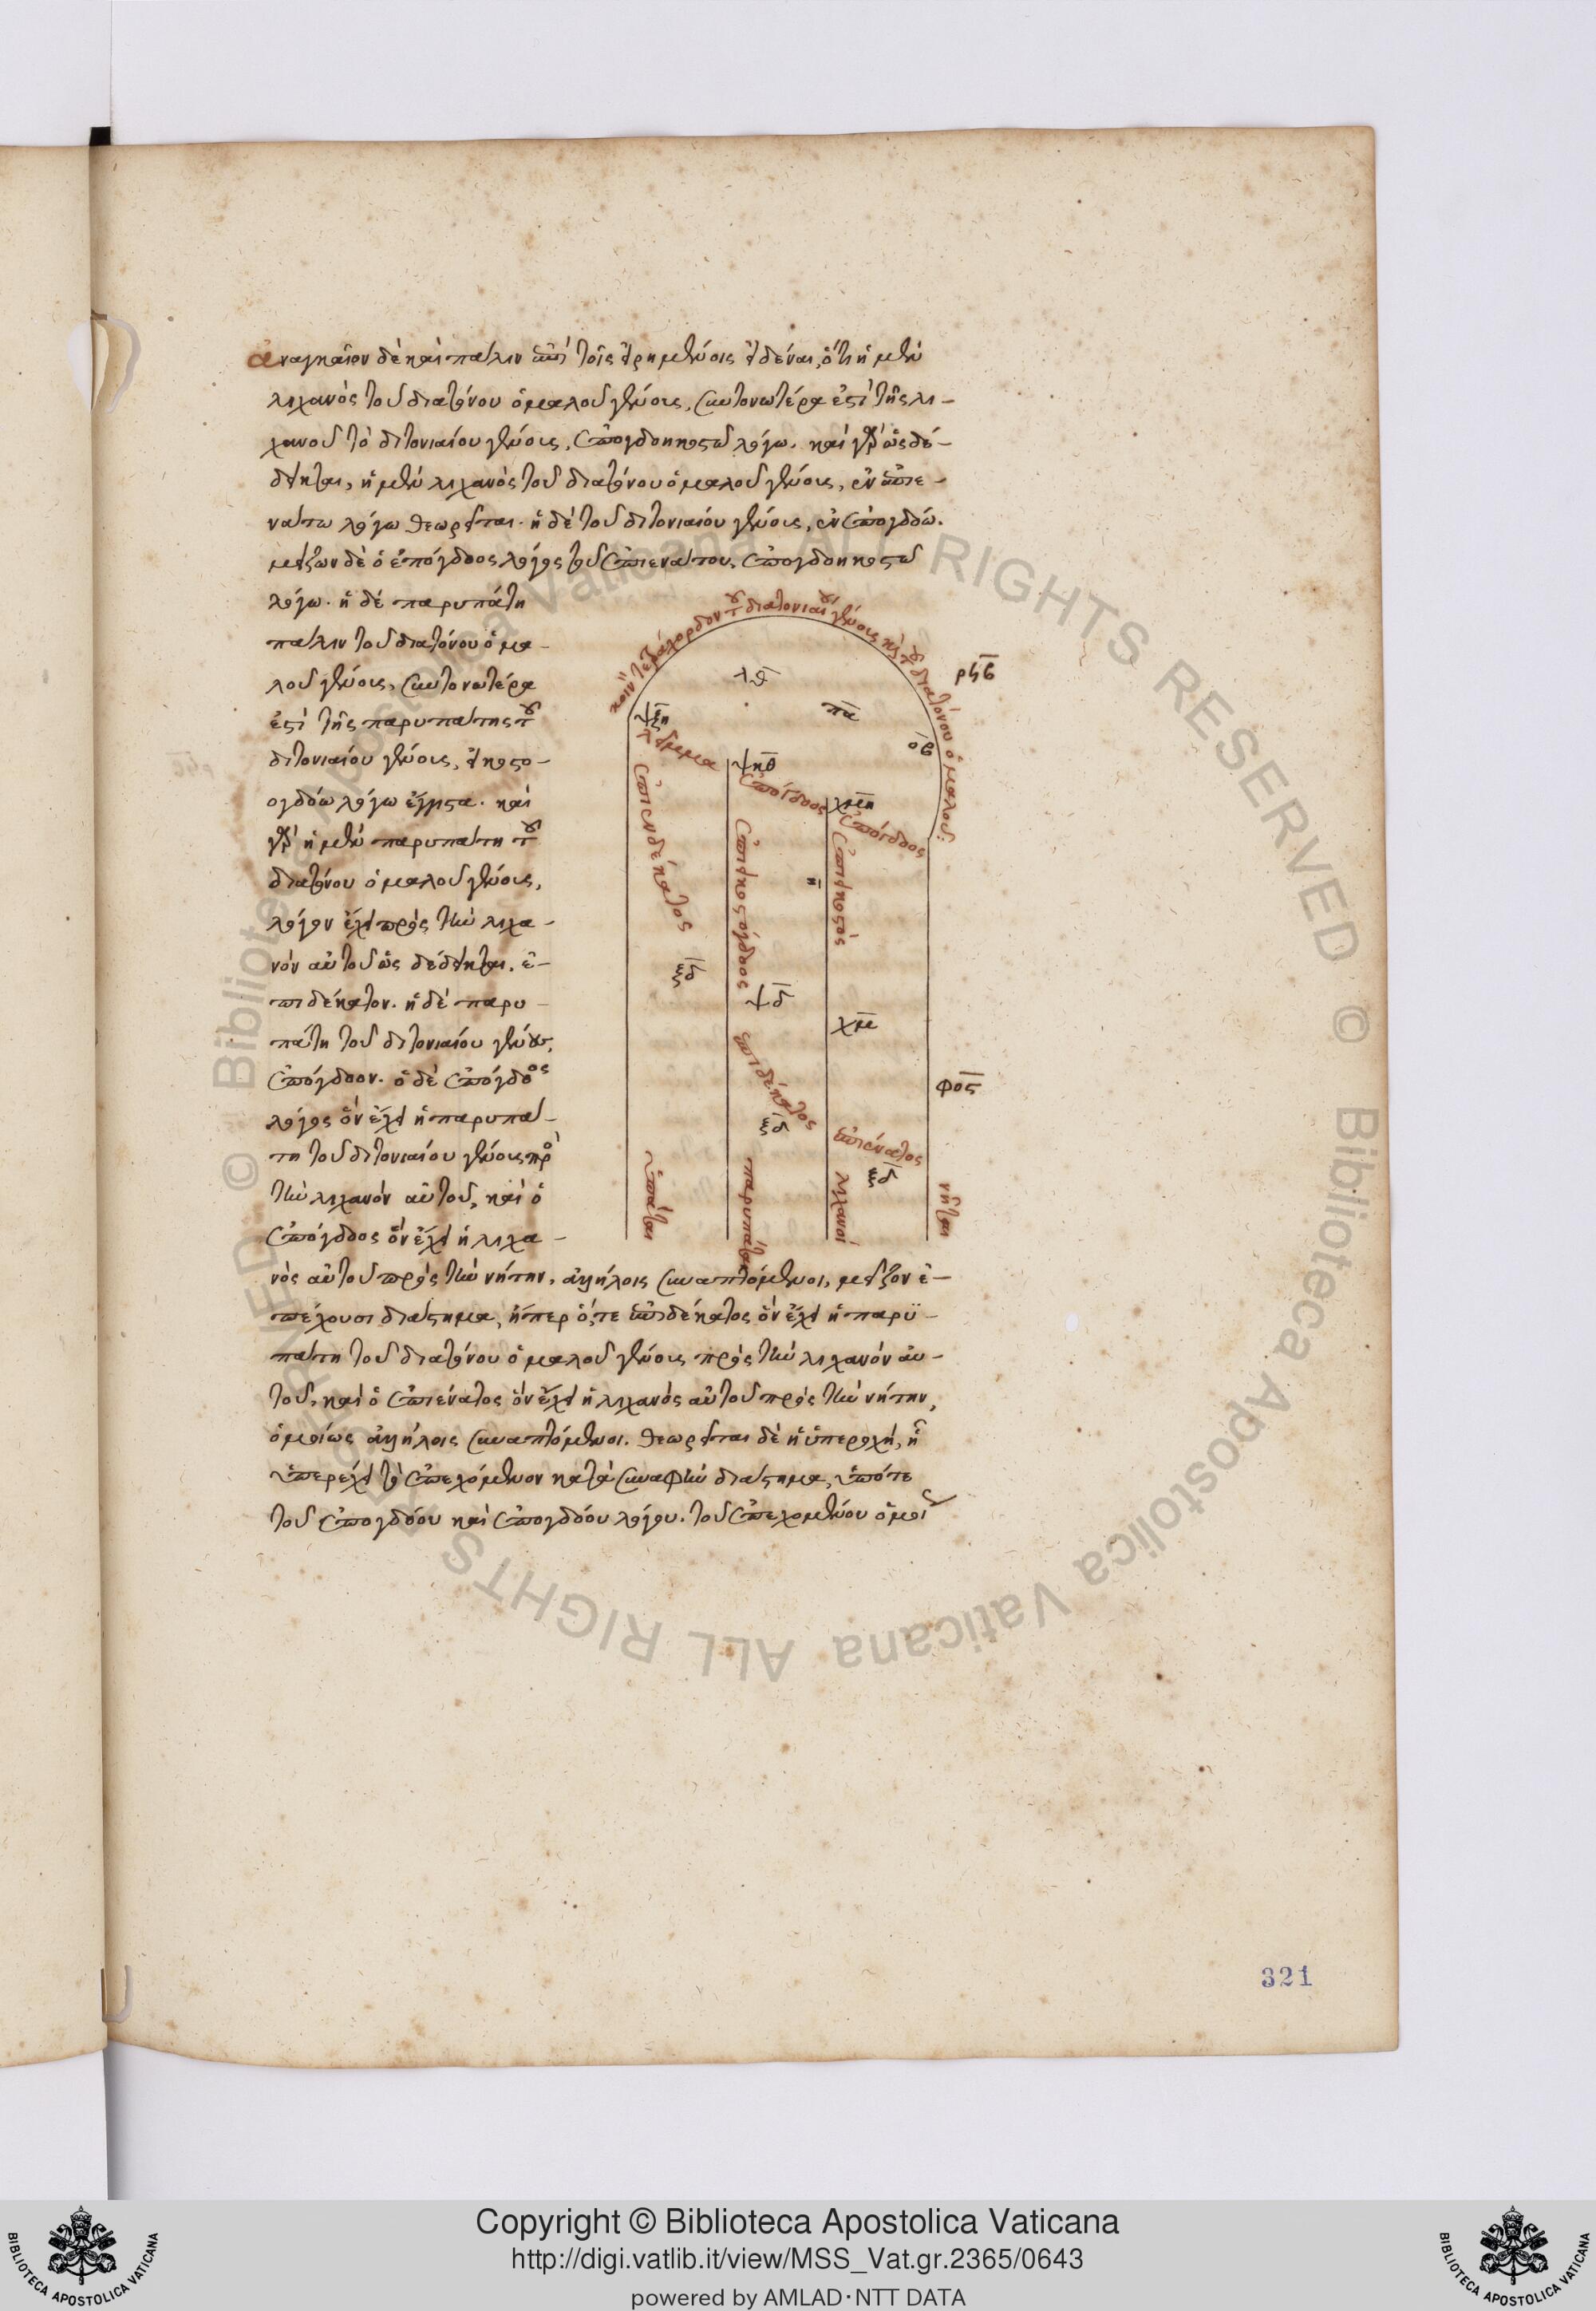 ἀναγκαῖον δὲ καὶ πάλιν ἐπὶ τοῖς εἰρημένοις εἰδέναι, ὅτι ἡ μὲν
λιχανὸς τοῦ διατόνου ὁμαλοῦ γένους, συντονωτέρα ἐστὶ τῆς λι-
χανοῦ τὸ διτονιαίου γένους, ἐπογδοηκοστῶ λόγω. καὶ γὰρ ὡς δέ-
δεικται, ἡ μὲν λιχανὸς τοῦ διατόνου ὁμαλοῦ γένους, ἐν ἐπιε-
νάτω λόγω θεωρεῖται. ἡ δὲ τοῦ διτονιαίου γένους, ἐν ἐπογδόω.
μείζων δὲ ὁ ἐπόγδοος λόγος τοῦ ἐπιενάτου, ἐπογδοηκοστῶ
λόγω. ἡ δὲ παρυπάτη
πάλιν τοῦ διατόνου ὁμα-
λοῦ γένους, συντονωτέρα
ἐστὶ τῆς παρυπάτης τοῦ
διτονιαίου γένους, εἰκοστο-
ογδόω λόγω ἔγγιστα. καὶ
γὰρ ἡ μὲν παρυπάτη τοῦ
διατόνου ὁμαλοῦ γένους,
λόγον ἔχει πρὸς τὴν λιχα-
νὸν αὐτοῦ ὡς δέδεικται, ἐ-
πιδέκατον. ἡ δὲ παρυ-
πάτη τοῦ διτονιαίου γένους,
ἐπόγδοον. ὁ δὲ ἐπόγδοος
λόγος ὃν ἔχει ἡ παρυπά-
τη τοῦ διτονιαίου γένους πρὸς
τὴν λιχανὸν αὐτοῦ, καὶ ὁ
ἐπόγδοος ὃν ἔχει ἡ λιχα-
νὸς αὐτοῦ πρὸς τὴν νήτην, ἀλλήλοις συναπτόμενοι, μεῖζον ἐ-
πέχουσι διάστημα, ἤπερ ὅ,τε ἐπιδέκατος ὃν ἔχει ἡ παρϋ-
πάτη τοῦ διατόνου ὁμαλοῦ γένους πρὸς τὴν λιχανὸν αὐ-
τοῦ, καὶ ὁ ἐπιένατος ὃν ἔχει ἡ λιχανὸς αὐτοῦ πρὸς τὴν νήτην,
ὁμοίως ἀλλήλοις συναπτόμενοι. θεωρεῖται δὲ ἡ ὑπεροχὴ, ἣ
ὑπερέχει τὸ ἐπεχόμενον κατὰ συναφὴν διάστημα, ὑπό τε
τοῦ ἐπογδόου καὶ ἐπογδόου λόγου. τοῦ ἐπεχομένου ὁμοί
κοινὸν τετράχορδον τοῦ διατονιαίου γένους καὶ τοῦ διατόνου ὁμαλοῦ:
ρϟβ
λθ
πα
οβ
ψξη
λεῖμμα
ψκθ
ἐπόγδοος
χμη
ἐπόγδοος
ἐπιενδέκατος
ἐπιεικοστόγδοος
ἐπιεικοστὸς
ξδ
ψδ
χμ
ἐπιδέκατος
φος
ξδ
ἐπιένατος
ξδ
ὑπάται
παρυπάται
λιχανοὶ
νῆται
321
Copyright © Biblioteca Apostolica Vaticana
http://digi.vatlib.it/view/MSS_Vat.gr.2365/0643
powered by AMLAD·NTT DATA
BIBLIOTECA APOSTOLICA VATICANA
BIBLIOTECA APOSTOLICA VATICANA
© Biblioteca Apostolica Vaticana ALL RIGHTS RESERVED © Biblioteca Apostolica Vaticana ALL RIGHTS RESERVED